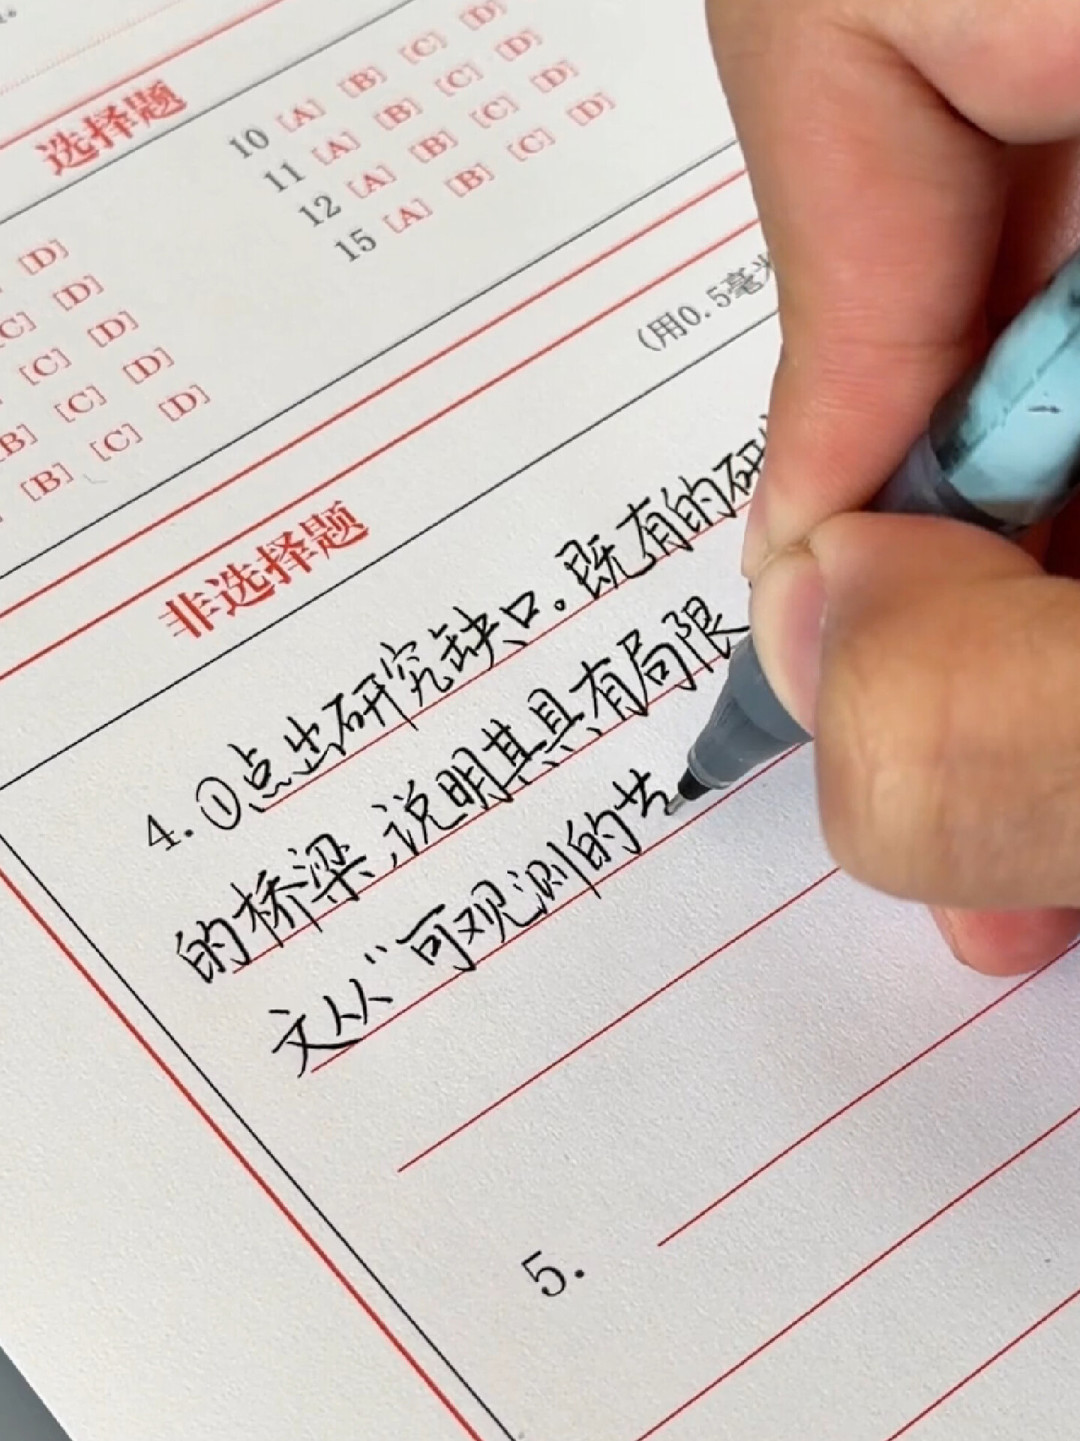 选择题
10 [A] [B] [C] [D]
11 [A] [B] [C] [D]
12 [A] [B] [C] [D]
15 [A] [B] [C] [D]
[D]
[C] [D]
[C] [D]
[B] [C] [D]
[B] [C] [D]
(用0.5毫米
非选择题
4.①点出研究缺口。既有的研
的桥梁,说明其具有局限
文从“可观测的共
5.